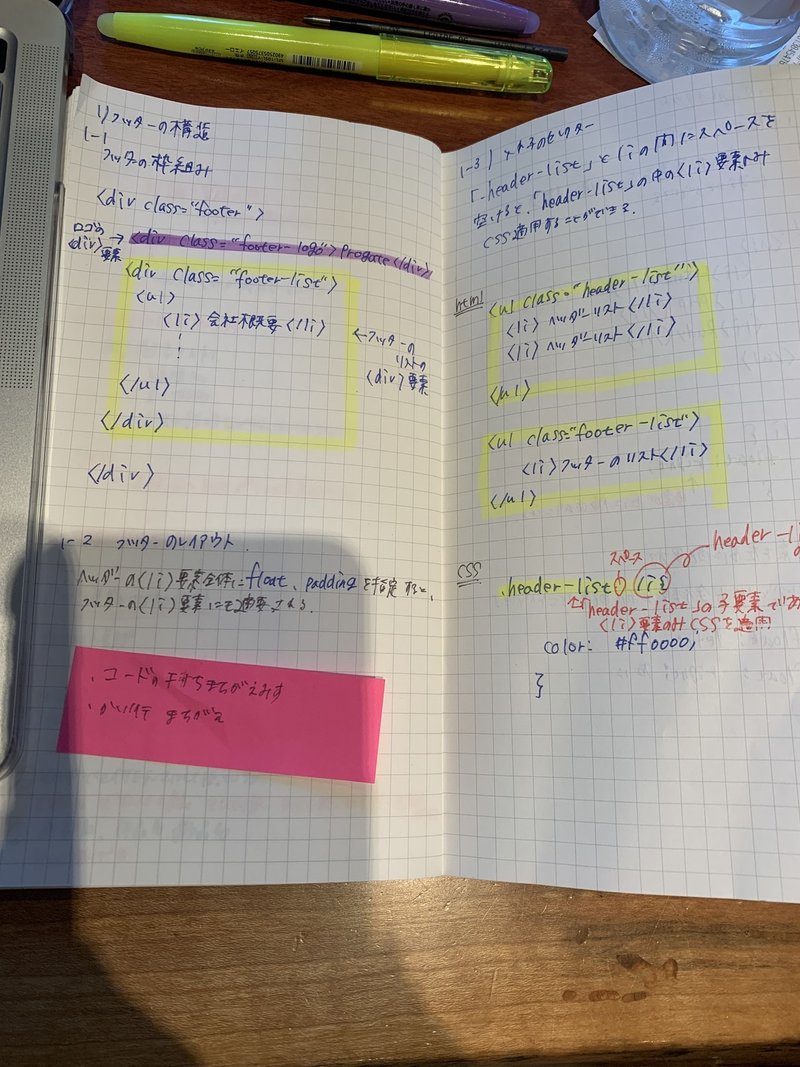 1) フッターの構造
1-1
フッターの枠組み
<div class="footer">
ロゴの
<div>要素 → <div class="footer-logo">Progate</div>
<div class="footer-list">
<ul>
<li>会社概要</li>
</ul>
</div>
</div>
←フッターの
リストの
<div>要素
1-2 フッターのレイアウト
ヘッダーの<li>要素全体にfloat、paddingを指定すると、
フッターの<li>要素にも適用される。
・コードの打ちまちがえみす
・まちがえ
1-3)
「.header-list」と liの間にスペースを
空けると、「header-list」の中の<li>要素のみ
CSS適用することができる.
html
<ul class="header-list">
<li>ヘッダーリスト</li>
<li>ヘッダーリスト</li>
</ul>
<ul class="footer-list">
<li>フッターのリスト</li>
</ul>
CSS
スペース
header-l
.header-list li{
「header-list」の子要素であ
<li>要素のみCSSを適用
color: #ff0000;
}